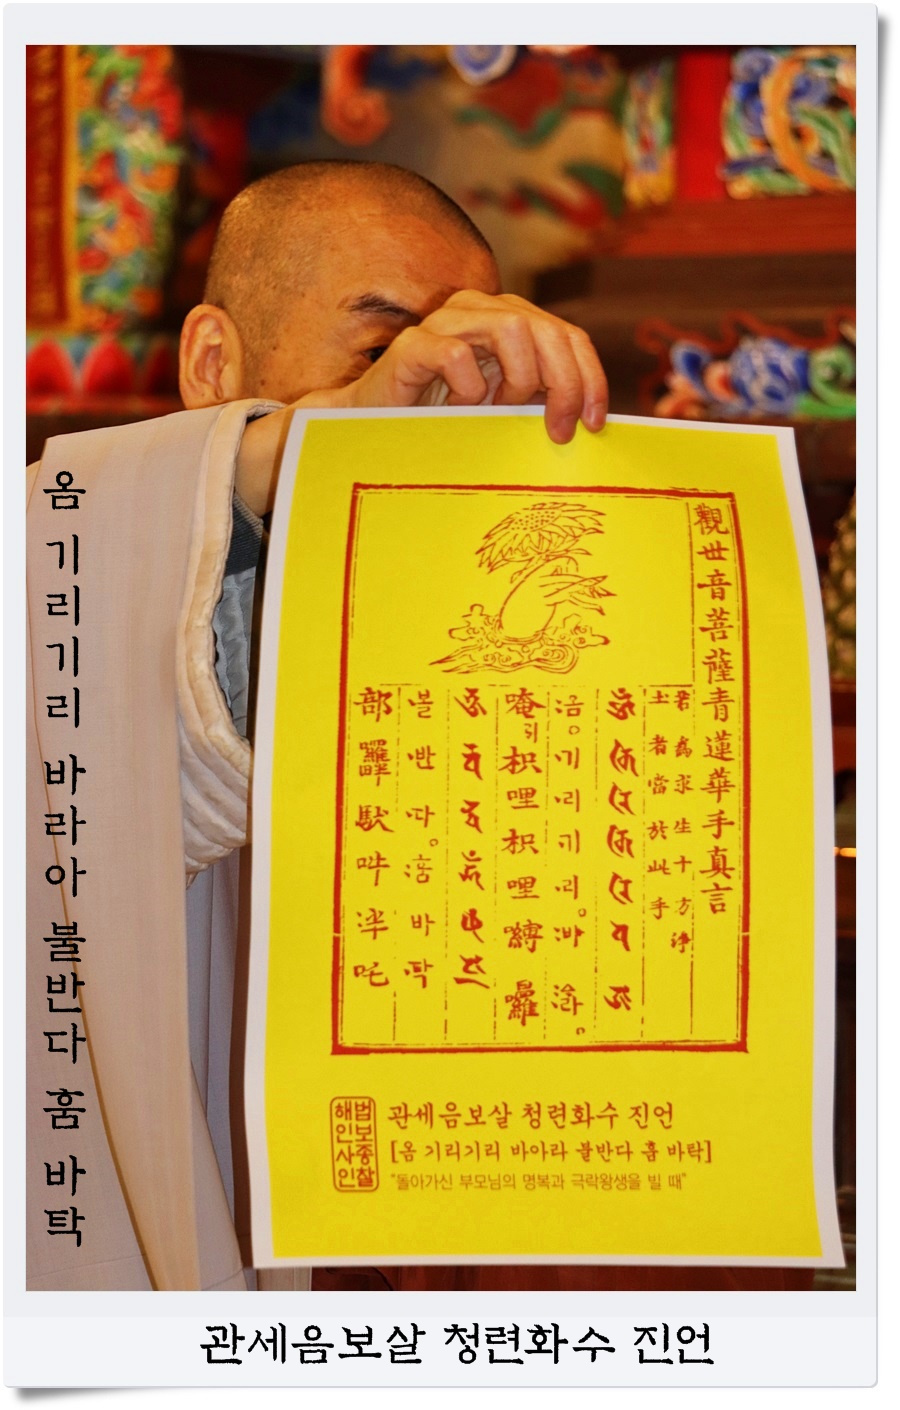 옴 기리기리 바라아 불반다 훔 바탁
觀世音菩薩青蓮華手真言
若為求生十方淨
土者當於此手
唵引枳哩枳哩嚩囉
볼반다。훔바탁
吽泮吒
법보종찰
해인사인
관세음보살 청련화수 진언
[옴 기리기리 바아라 불반다 훔 바탁]
"돌아가신 부모님의 명복과 극락왕생을 빌 때"
관세음보살 청련화수 진언